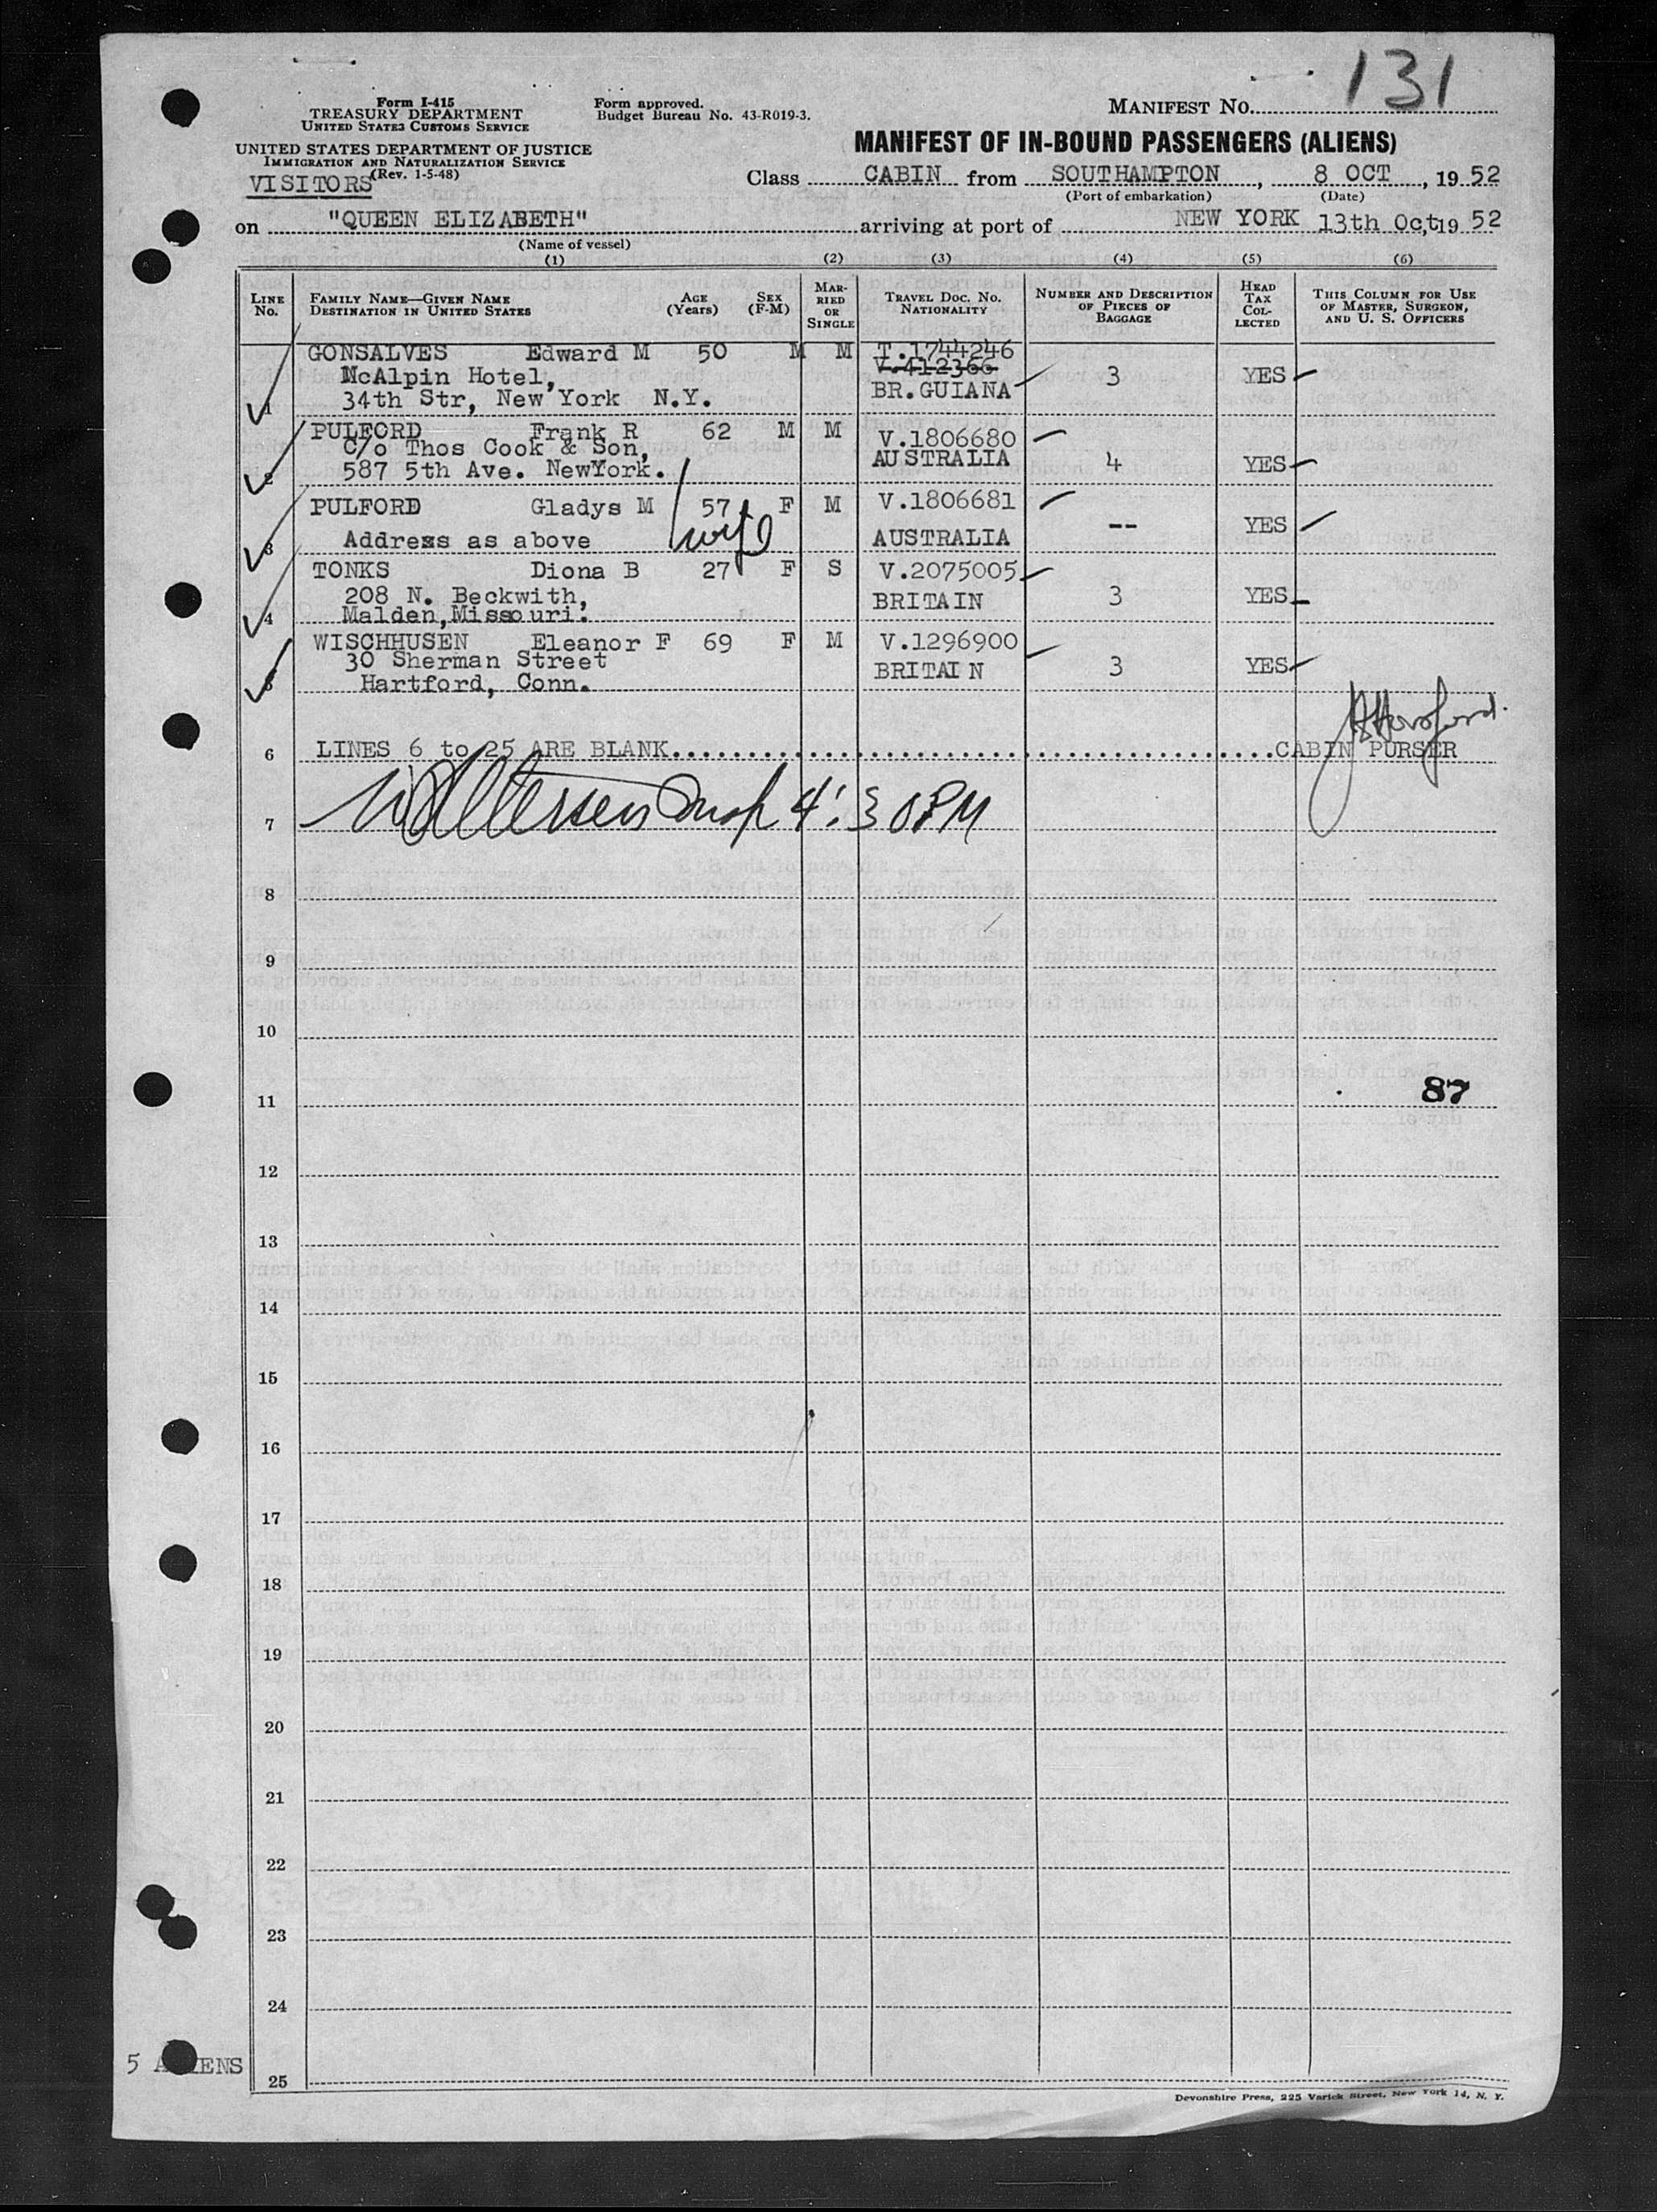 131
Form I-415
TREASURY DEPARTMENT
UNITED STATES CUSTOMS SERVICE
Form approved.
Budget Bureau No. 43-R019-3.
MANIFEST No.
UNITED STATES DEPARTMENT OF JUSTICE
IMMIGRATION AND NATURALIZATION SERVICE
(Rev. 1-5-48)
VISITORS
MANIFEST OF IN-BOUND PASSENGERS (ALIENS)
Class CABIN from SOUTHAMPTON, 8 OCT, 1952
(Port of embarkation) (Date)
on "QUEEN ELIZABETH" arriving at port of NEW YORK 13th Oct, 1952
(Name of vessel)
(1) (2) (3) (4) (5) (6)
LINE No. FAMILY NAME—GIVEN NAME DESTINATION IN UNITED STATES AGE (Years) SEX (F-M) MARRIED OR SINGLE TRAVEL DOC. NO. NATIONALITY NUMBER AND DESCRIPTION OF PIECES OF BAGGAGE HEAD TAX COLLECTED THIS COLUMN FOR USE OF MASTER, SURGEON, AND U. S. OFFICERS
GONSALVES Edward M 50 M M T.1744246
V.412366
McAlpin Hotel, 3 YES
1 34th Str, New York N.Y. BR.GUIANA
PULFORD Frank R 62 M M V.1806680
C/o Thos Cook & Son, AUSTRALIA
2 587 5th Ave. NewYork. 4 YES
PULFORD Gladys M 57 F M V.1806681
wife -- YES
3 Address as above AUSTRALIA
TONKS Diona B 27 F S V.2075005
208 N. Beckwith, BRITAIN 3 YES
4 Malden, Missouri.
WISCHHUSEN Eleanor F 69 F M V.1296900
30 Sherman Street BRITAIN 3 YES
5 Hartford, Conn.
6 LINES 6 to 25 ARE BLANK. CABIN PURSER
7 4:30PM
8
9
10
11 87
12
13
14
15
16
17
18
19
20
21
22
23
24
5 A ENS
25
Devonshire Press, 225 Varick Street, New York 14, N. Y.